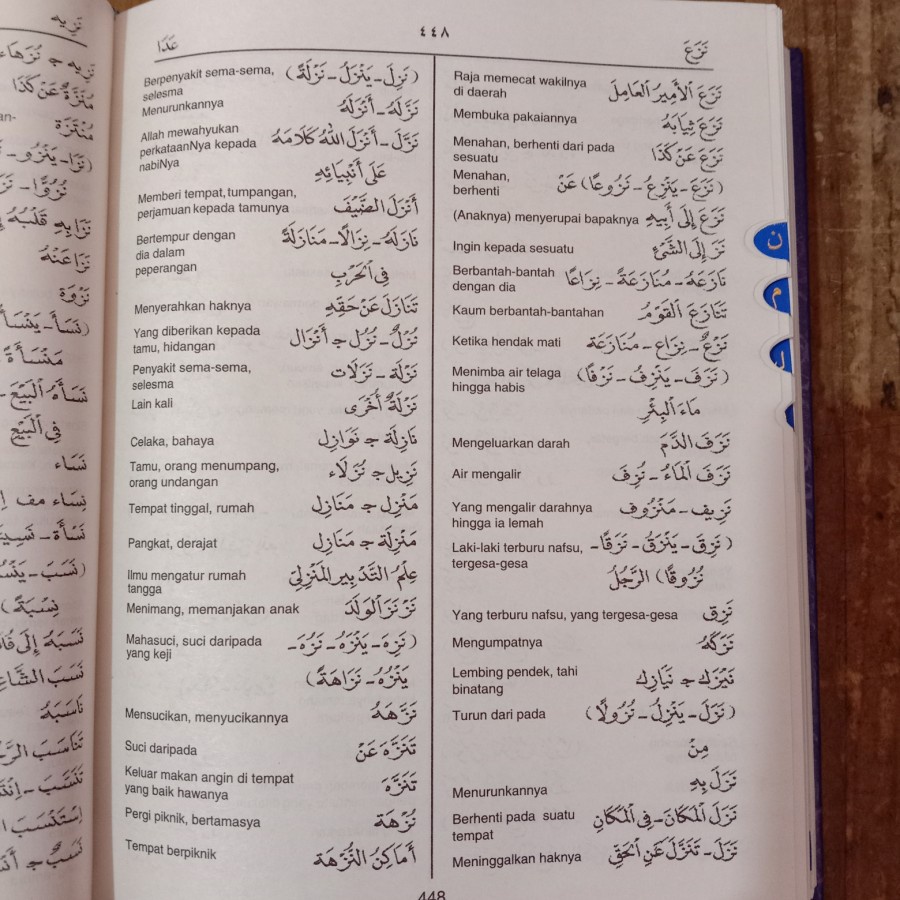 نَزَعَ
٤٤٨
عَدَا
نَزَعَ الْأَمِيْرُ الْعَامِلَ
Raja memecat wakilnya
di daerah
نَزَعَ ثِيَابَهُ
Membuka pakaiannya
نَزَعَ عَنْ كَذَا
Menahan, berhenti dari pada
sesuatu
(نَزَعَ - يَنْزِعُ - نُزُوعًا) عَنْ
Menahan,
berhenti
نَزَعَ إِلَى أَبِيْهِ
(Anaknya) menyerupai bapaknya
نَزَ إِلَى الشَّئْ
Ingin kepada sesuatu
نَازَعَهُ - مُنَازَعَةً - نِزَاعًا
Berbantah-bantah
dengan dia
تَنَازَعَ الْقَوْمُ
Kaum berbantah-bantahan
نَزْعٌ - نِزَاع - مُنَازَعَة
Ketika hendak mati
(نَزَفَ - يَنْزِفُ - نَزْفًا)
Menimba air telaga
hingga habis
مَاءَ الْبِئْرِ
نَزَفَ الدَّمَ
Mengeluarkan darah
نَزَفَ الْمَاءُ - نُزِفَ
Air mengalir
نَزِيف - مَنْزُوف
Yang mengalir darahnya
hingga ia lemah
(نَزِقَ - يَنْزَقُ - نَزَقًا -
Laki-laki terburu nafsu,
tergesa-gesa
نُزُوقًا) الرَّجُلُ
نَزِق
Yang terburu nafsu, yang tergesa-gesa
نَزَكَهُ
Mengumpatnya
نَيْزَك ج نَيَازِك
Lembing pendek, tahi
binatang
(نَزَلَ - يَنْزِلُ - نُزُولًا)
Turun dari pada
مِنْ
نَزَلَ بِهِ
Menurunkannya
نَزَلَ الْمَكَانَ - فِى الْمَكَانِ
Berhenti pada suatu
tempat
نَزَلَ - تَنَزَّلَ عَنِ الْحَقِّ
Meninggalkan haknya
(نَزِلَ - يَنْزَلُ - نَزْلَةً)
Berpenyakit sema-sema,
selesma
نَزَّلَهُ - أَنْزَلَهُ
Menurunkannya
نَزَّلَ - أَنْزَلَ اللهُ كَلَامَهُ
Allah mewahyukan
perkataanNya kepada
nabiNya
عَلَى أَنْبِيَائِهِ
أَنْزَلَ الضَّيْفَ
Memberi tempat,tumpangan,
perjamuan kepada tamunya
نَازَلَهُ - نِزَالًا - مُنَازَلَةً
Bertempur dengan
dia dalam
peperangan
فِى الْحَرْبِ
تَنَازَلَ عَنْ حَقِّهِ
Menyerahkan haknya
نُزْلٌ - نُزُل ج أَنْزَال
Yang diberikan kepada
tamu, hidangan
نَزْلَة - نَزَلَات
Penyakit sema-sema,
selesma
نَزْلَةٌ أُخْرَى
Lain kali
نَازِلَة ج نَوَازِل
Celaka, bahaya
نَزِيل ج نُزَلَاء
Tamu, orang menumpang,
orang undangan
مَنْزِل ج مَنَازِل
Tempat tinggal, rumah
مَنْزِلَة ج مَنَازِل
Pangkat, derajat
عِلْمُ التَّدْبِيرِ الْمَنْزِلِيِّ
Ilmu mengatur rumah
tangga
نَزْنَزَ الْوَلَدَ
Menimang, memanjakan anak
(نَزِهَ - يَنْزَهُ - نَزُهَ -
Mahasuci, suci daripada
yang keji
يَنْزُهُ - نَزَاهَةً)
نَزَّهَهُ
Mensucikan, menyucikannya
تَنَزَّهَ عَنْ
Suci daripada
تَنَزَّهَ
Keluar makan angin di tempat
yang baik hawanya
نُزْهَة
Pergi piknik, bertamasya
أَمَاكِنُ النُّزْهَة
Tempat berpiknik
448
ن
م
ل
نَزِيه
نَزِيه ج نُزَهَاء
مُنَزَّهٌ عَنْ كَذَا
مُنْتَزَة
(نَزَا - يَنْزُو -
نُزُوًّا -
نَزَا بِهِ قَلْبُهُ
نَزَا عَنْهُ
نَزْوَة
(نَسَأَ - يَنْسَأُ
مَنْسَأَةً
نَسَأَهُ الْبَيْعَ -
فِى الْبَيْعِ
نَسَاء
نِسَاء مف
نَسْأَة -
(نَسَبَ -
نِسْبَةً)
نَسَبَهُ إِلَى
نَسَبَ الشَّاعِرُ
نَاسَبَهُ
تَنَاسَبَ
تَنَسَّبَ -
اِسْتَنْسَبَ
نَسَبٌ ج